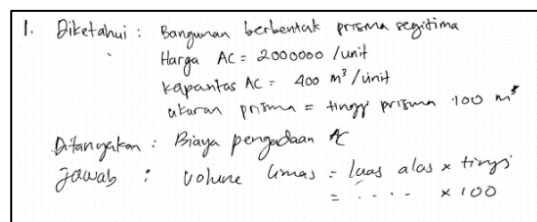 1. Diketahui : Bangunan berbentuk prisma segitima
Harga AC = 2000000 /unit
Kapasitas AC = 400 m³ /unit
ukuran prisma = tinggi prisma 100 m³
Ditanyakan : Biaya pengadaan AC
Jawab : Volume limas = luas alas × tinggi
= .... × 100